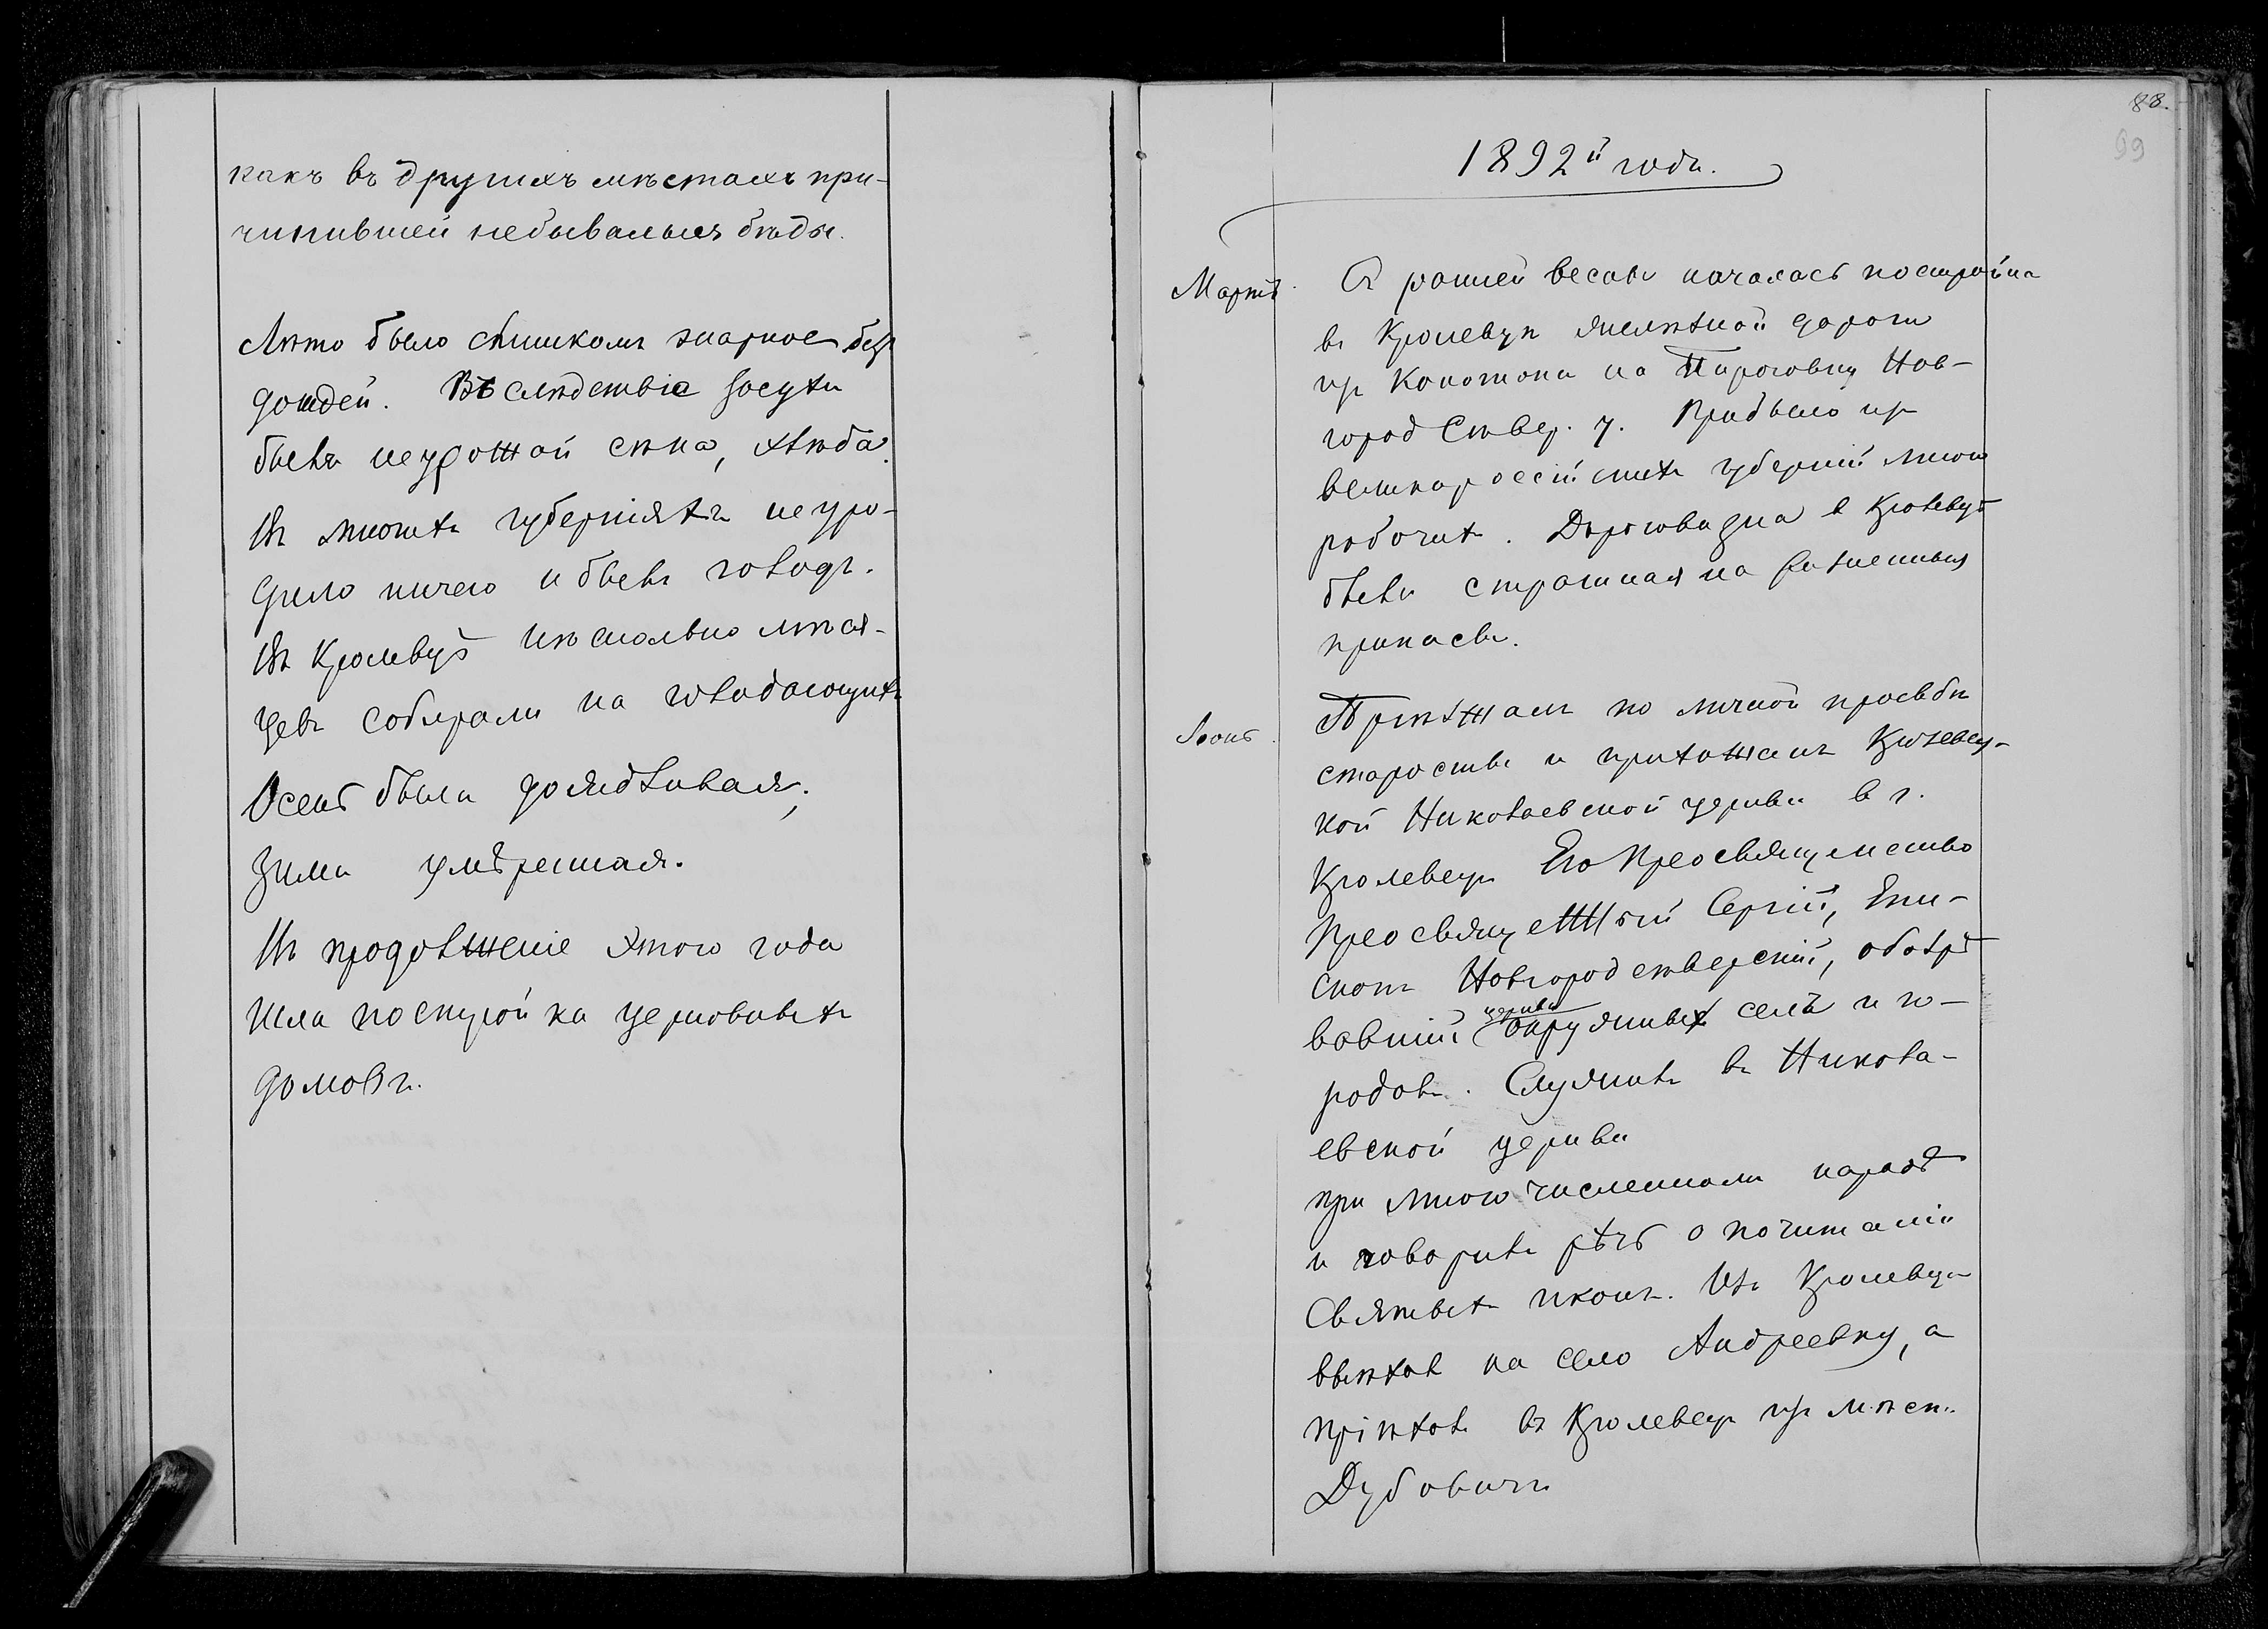 какъ въ другихъ мѣстахъ при-
чинившей небывалыя бѣды.
Лѣто было слишкомъ жаркое безъ
дождей. Въ слѣдствіе засухи
былъ неурожай сѣна, хлѣба.
Въ многихъ губерніяхъ неуро-
дило ничего и былъ голодъ.
Въ Кролевцѣ нѣсколько мѣся-
цевъ собирали на голодающихъ
Осень была дождливая,
Зима умѣренная.
Въ продолженіе этого года
Шла постройка церковныхъ
домовъ.
88.
99
1892й годъ.
Мартъ. Съ ранней весны началась постройка
въ Кролевцѣ желѣзной дороги
изъ Конотопа на Пироговку Нов-
город Сѣвер. у. Прибыло изъ
великороссійскихъ губерній много
рабочихъ. Дороговизна в Кролевцѣ
была страшная на жизненныя
припасы.
Іюнь. Пріѣзжалъ по личной просьбѣ
старосты и прихожанъ Кролевец-
кой Николаевской церкви в г.
Кролевецъ Его Преосвященство
Преосвященный Сергій, Епи-
скопъ Новгородсѣверскій, обозрѣ
вавшій церкви окружныхъ селъ и го-
родовъ. Служилъ въ Никола-
евской церкви
при многочисленномъ народѣ
и говорилъ рѣчь о почитаніи
Святыхъ иконъ. Изъ Кролевца
выѣхалъ на село Андреевку, а
пріѣхалъ въ Кролевецъ изъ мѣст.
Дубовичи